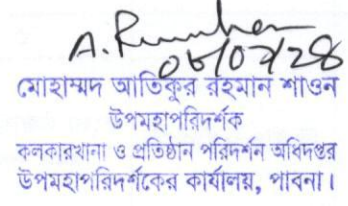 ০৮/০৭/২৪
মোহাম্মদ আতিকুর রহমান শাওন
উপমহাপরিদর্শক
কলকারখানা ও প্রতিষ্ঠান পরিদর্শন অধিদপ্তর
উপমহাপরিদর্শকের কার্যালয়, পাবনা।